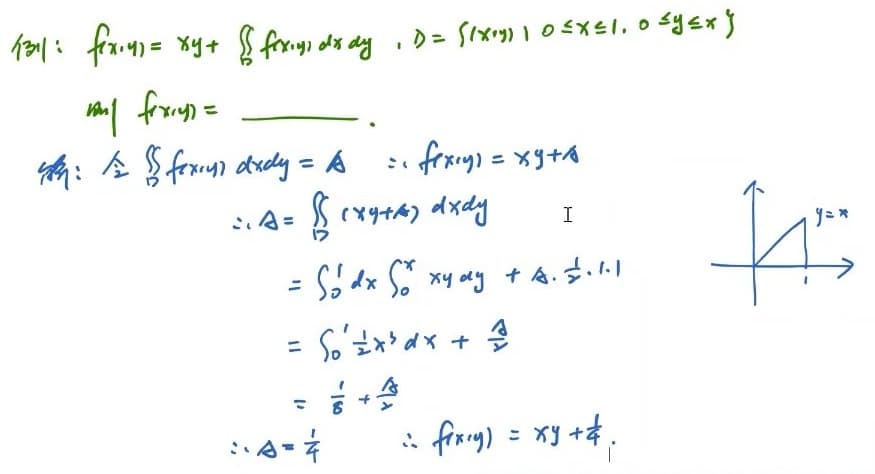 例: f(x,y) = xy + ∬_D f(x,y) dx dy , D = {(x,y) | 0 ≤ x ≤ 1, 0 ≤ y ≤ x}
则 f(x,y) = ________ .
解: 令 ∬_D f(x,y) dxdy = A ∴ f(x,y) = xy + A
∴ A = ∬_D (xy+A) dxdy
y = x
= ∫₀¹ dx ∫₀ˣ xy dy + A · 1/2 · 1 · 1
1
= ∫₀¹ 1/2 x³ dx + A/2
= 1/8 + A/2
∴ A = 1/4 ∴ f(x,y) = xy + 1/4 .